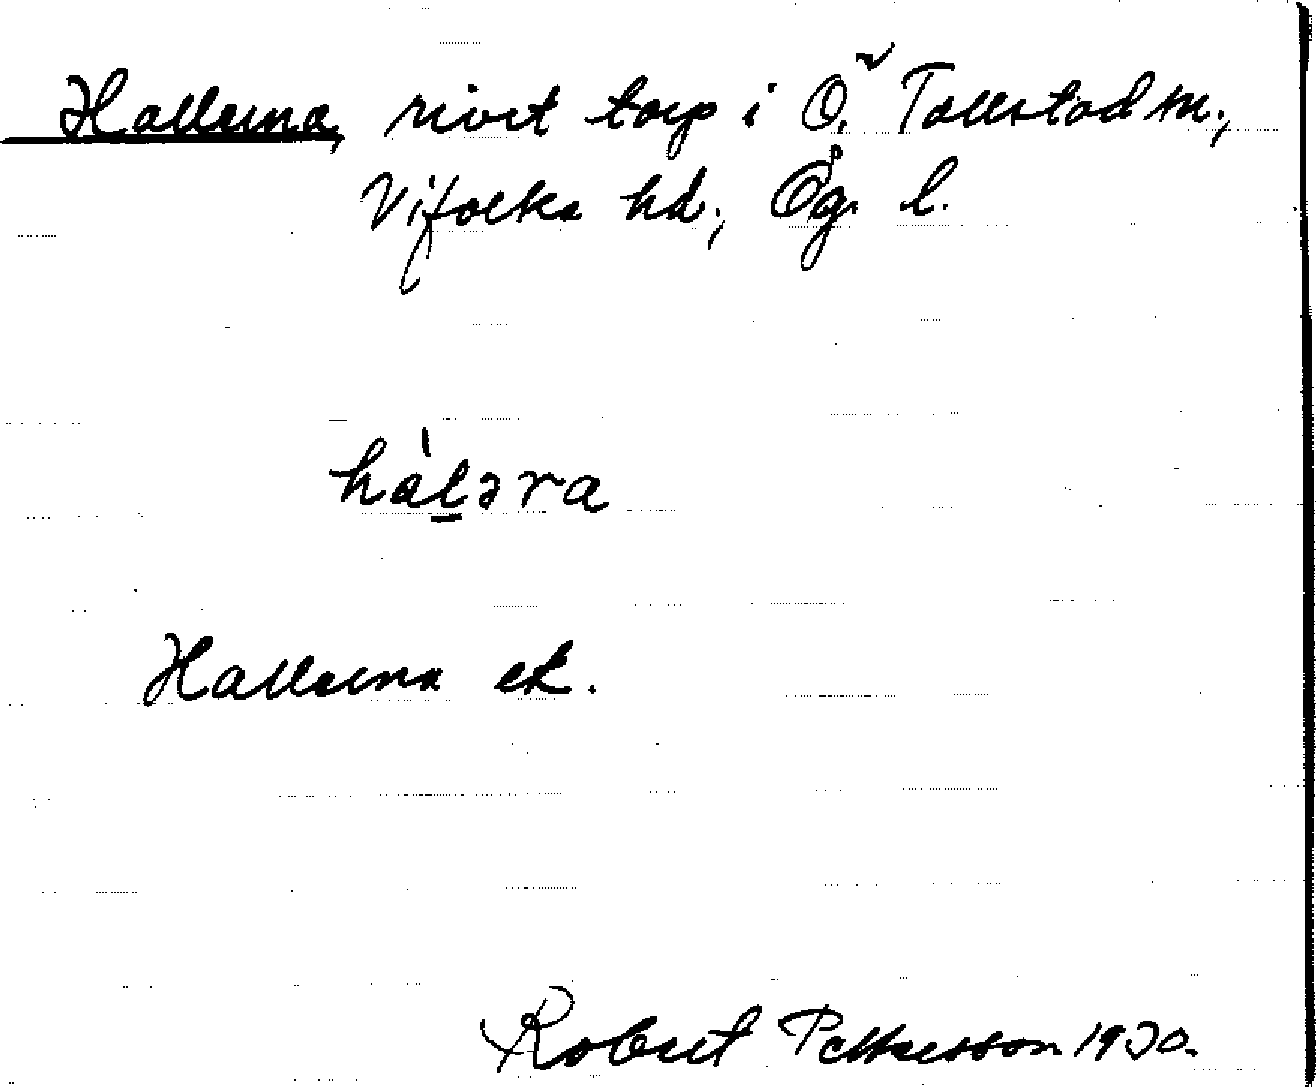 Hallerna, rivet torp i Ö. Tollstad sn.,
Vifolka hd., Ög. l.
hàlәra
Hallerna ek.
Robert Pettersson 1930.